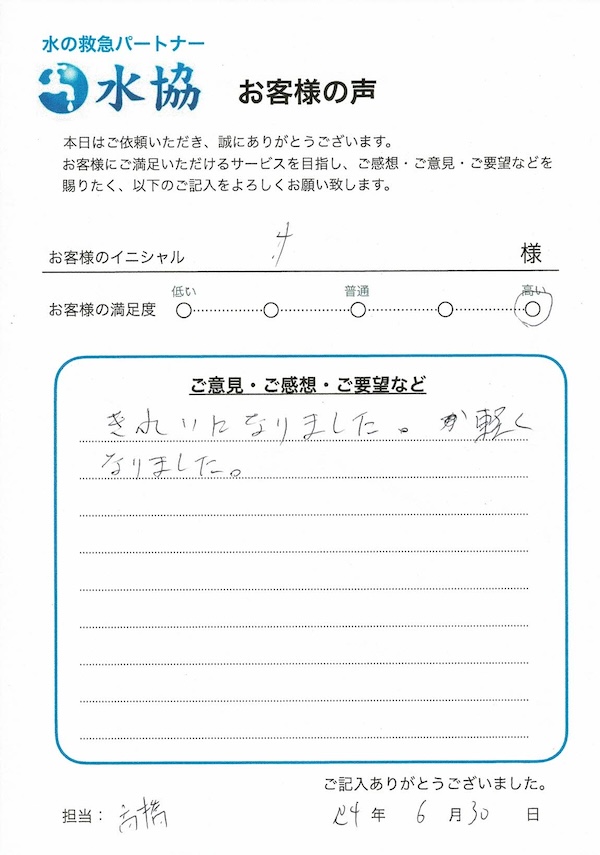 水の救急パートナー
水協
お客様の声
本日はご依頼いただき、誠にありがとうございます。
お客様にご満足いただけるサービスを目指し、ご感想・ご意見・ご要望などを
賜りたく、以下のご記入をよろしくお願い致します。
お客様のイニシャル 様
お客様の満足度 低い 普通 高い
ご意見・ご感想・ご要望など
きれいになりました。 が軽く
なりました。
ご記入ありがとうございました。
担当： 高橋 年 6 月 30 日